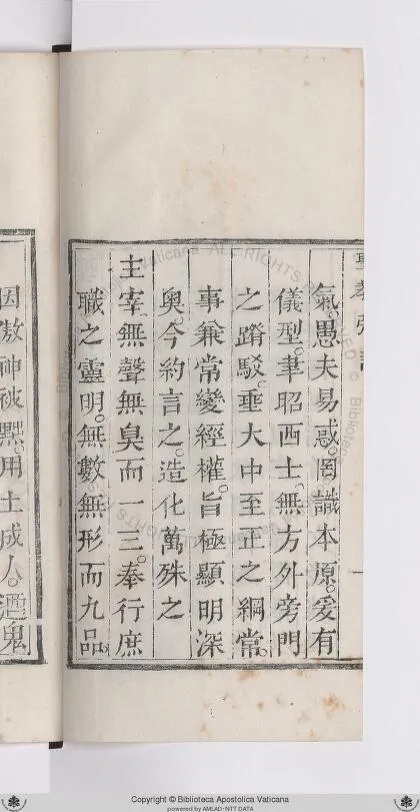 氣。愚夫易惑。罔識本原。爰有
儀型。聿昭西士。無方外旁門
之蹐駁。垂大中至正之綱常。
事兼常變經權。旨極顯明深
奧。今約言之。造化萬殊之
主宰。無聲無臭而一三。奉行庶
職之靈明。無數無形而九品。
因傲神被黜。用土成人。遭鬼
Copyright © Biblioteca Apostolica Vaticana
powered by AMLAD-NTT DATA